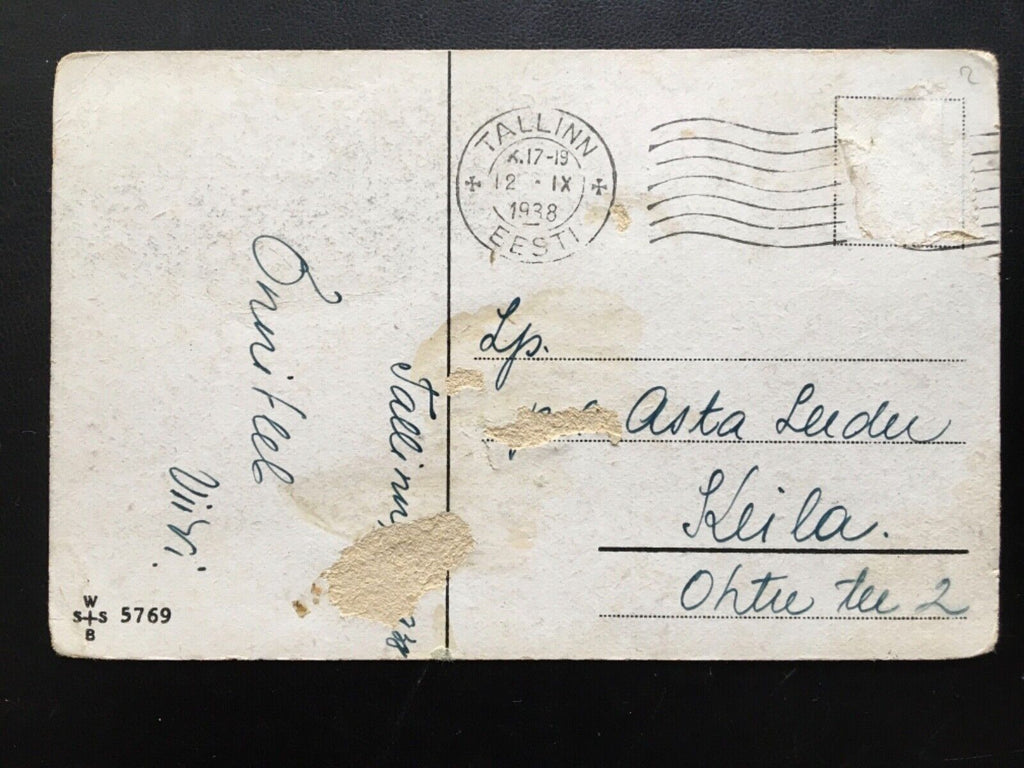 TALLINN
K.17-19
12 IX
1938
EESTI
Õnnitleb
Viivi
Tallinn,
38
Lp.
Asta Leeder
Keila.
Ohtu tee 2
W
S+S 5769
B
2